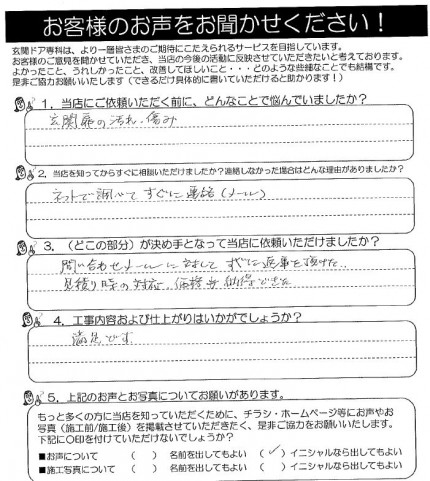 お客様のお声をお聞かせください!
玄関ドア専科は、より一層皆さまのご期待にこたえられるサービスを目指しています。
お客様のご意見を聞かせていただき、当店の今後の活動に反映させていただきたいと考えております。
よかったこと、うれしかったこと、改善してほしいこと・・・どのような些細なことでも結構です。
是非ご協力お願いいたします(できるだけ具体的に書いていただけると助かります!)
1.当店にご依頼いただく前に、どんなことで悩んでいましたか?
玄関扉の汚れ、傷み
2.当店を知ってからすぐに相談いただけましたか?連絡しなかった場合はどんな理由がありましたか?
ネットで調べてすぐに連絡(メール)
3.(どこの部分)が決め手となって当店に依頼いただけましたか?
問い合わせメールに対してすぐに返事を頂けた。
見積り時の対応、価格も納得できた
4.工事内容および仕上がりはいかがでしょうか?
満足です
5.上記のお声とお写真についてお願いがあります。
もっと多くの方に当店を知っていただくために、チラシ・ホームページ等にお声やお
写真(施工前/施工後)を掲載させていただきたく、是非ご協力をお願いいたします。
下記に○印を付けていただけないでしょうか?
■お声について ( ) 名前を出してもよい (✓) イニシャルなら出してもよい
■施工写真について ( ) 名前を出してもよい ( ) イニシャルなら出してもよい